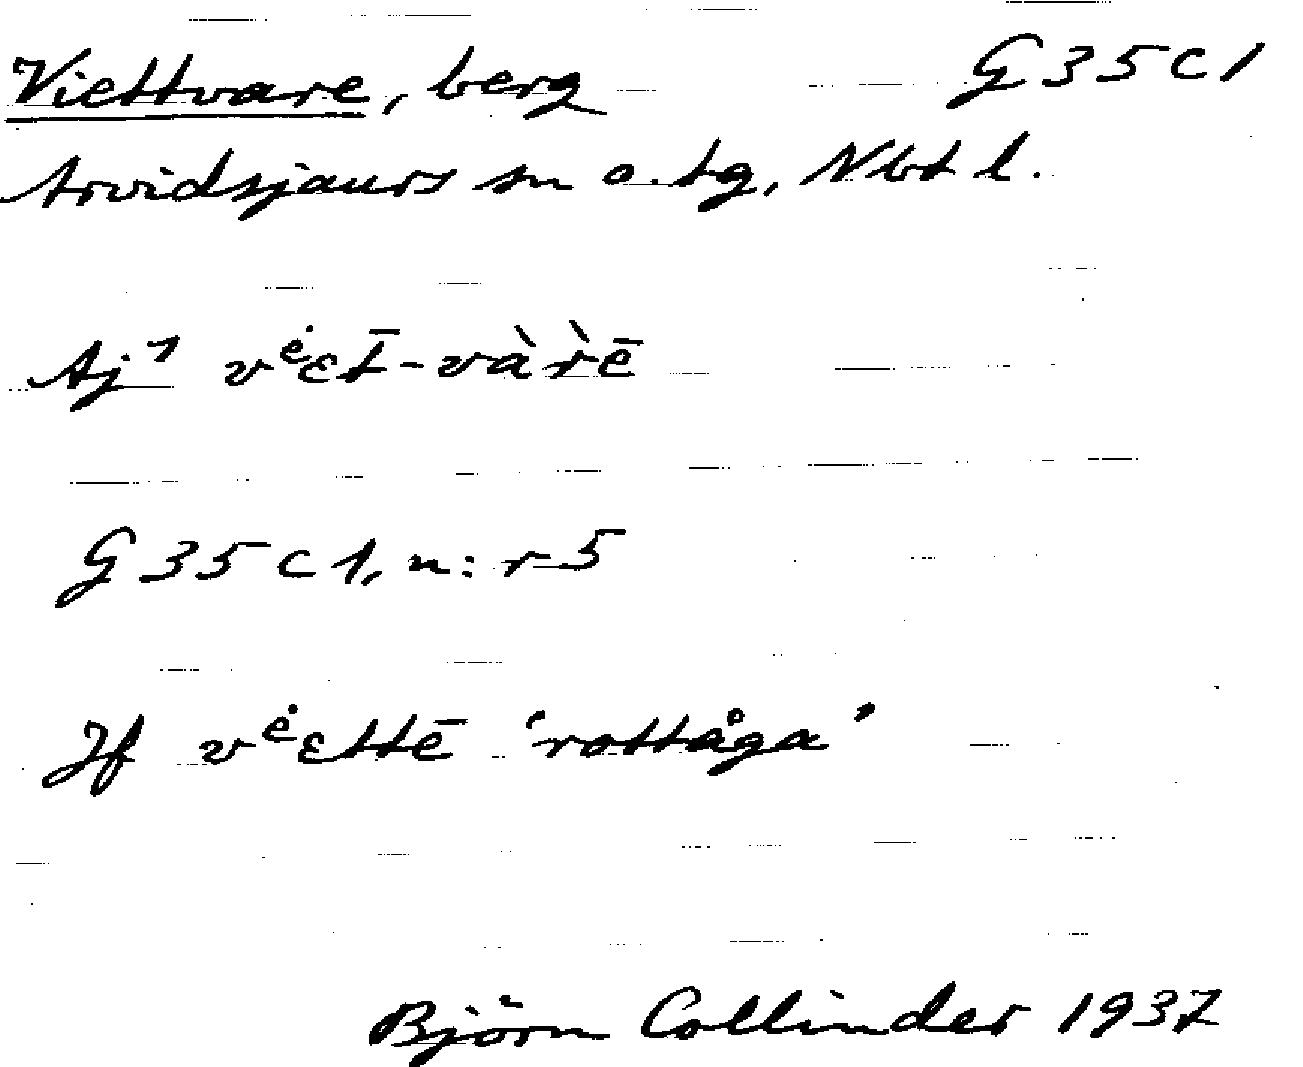 Viettvare, berg G35c1
Arvidsjaurs sn o. tg, Nbt l.
Aj¹ vᵉ̇ɛt̄-và̀r̀ē
G35c1, n:r 5
Jf vᵉ̇ɛttē 'rottåga'
Björn Collinder 1937